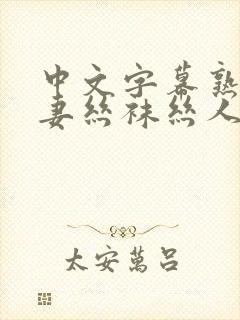 中文字幕熟
妻丝袜丝人
太安萬呂